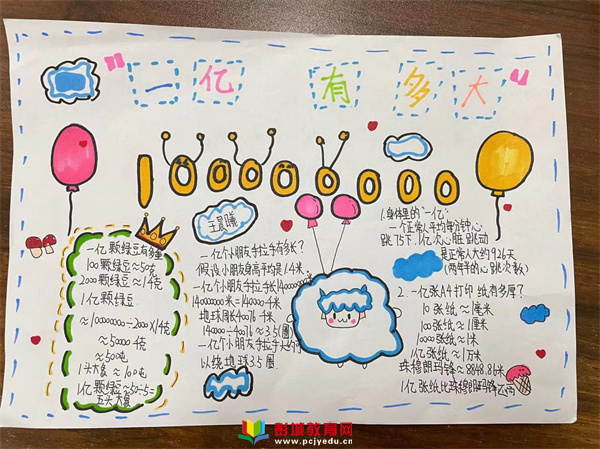 "一亿有多大"
100000000
王晨曦
一亿颗绿豆有多重
100颗绿豆≈50克
2000颗绿豆≈1千克
1亿颗绿豆
≈100000000÷2000×1千克
≈50000千克
≈50吨
1头大象≈10吨
1亿颗绿豆≈50÷5=
五头大象
一亿个小朋友手拉手有多长?
假设小朋友身高平均是1.4米,
一亿个小朋友手拉手长140000000
140000000米=140000千米
地球周长40076千米
140000÷40076≈3.5(圈)
一亿个小朋友手拉手大约可
以绕地球3.5圈
1.身体里的"一亿"
一个正常人平均每分钟心
跳75下,1亿次心脏跳动
是正常人大约926天
(两年半的心跳次数)
2.一亿张A4打印纸有多厚?
10张纸≈1毫米
100张纸≈1厘米
10000张纸≈1米
1亿张纸≈1万米
珠穆朗玛峰≈8848.86米
1亿张纸比珠穆朗玛峰还高
彭城教育网
www.pcjyedu.cn